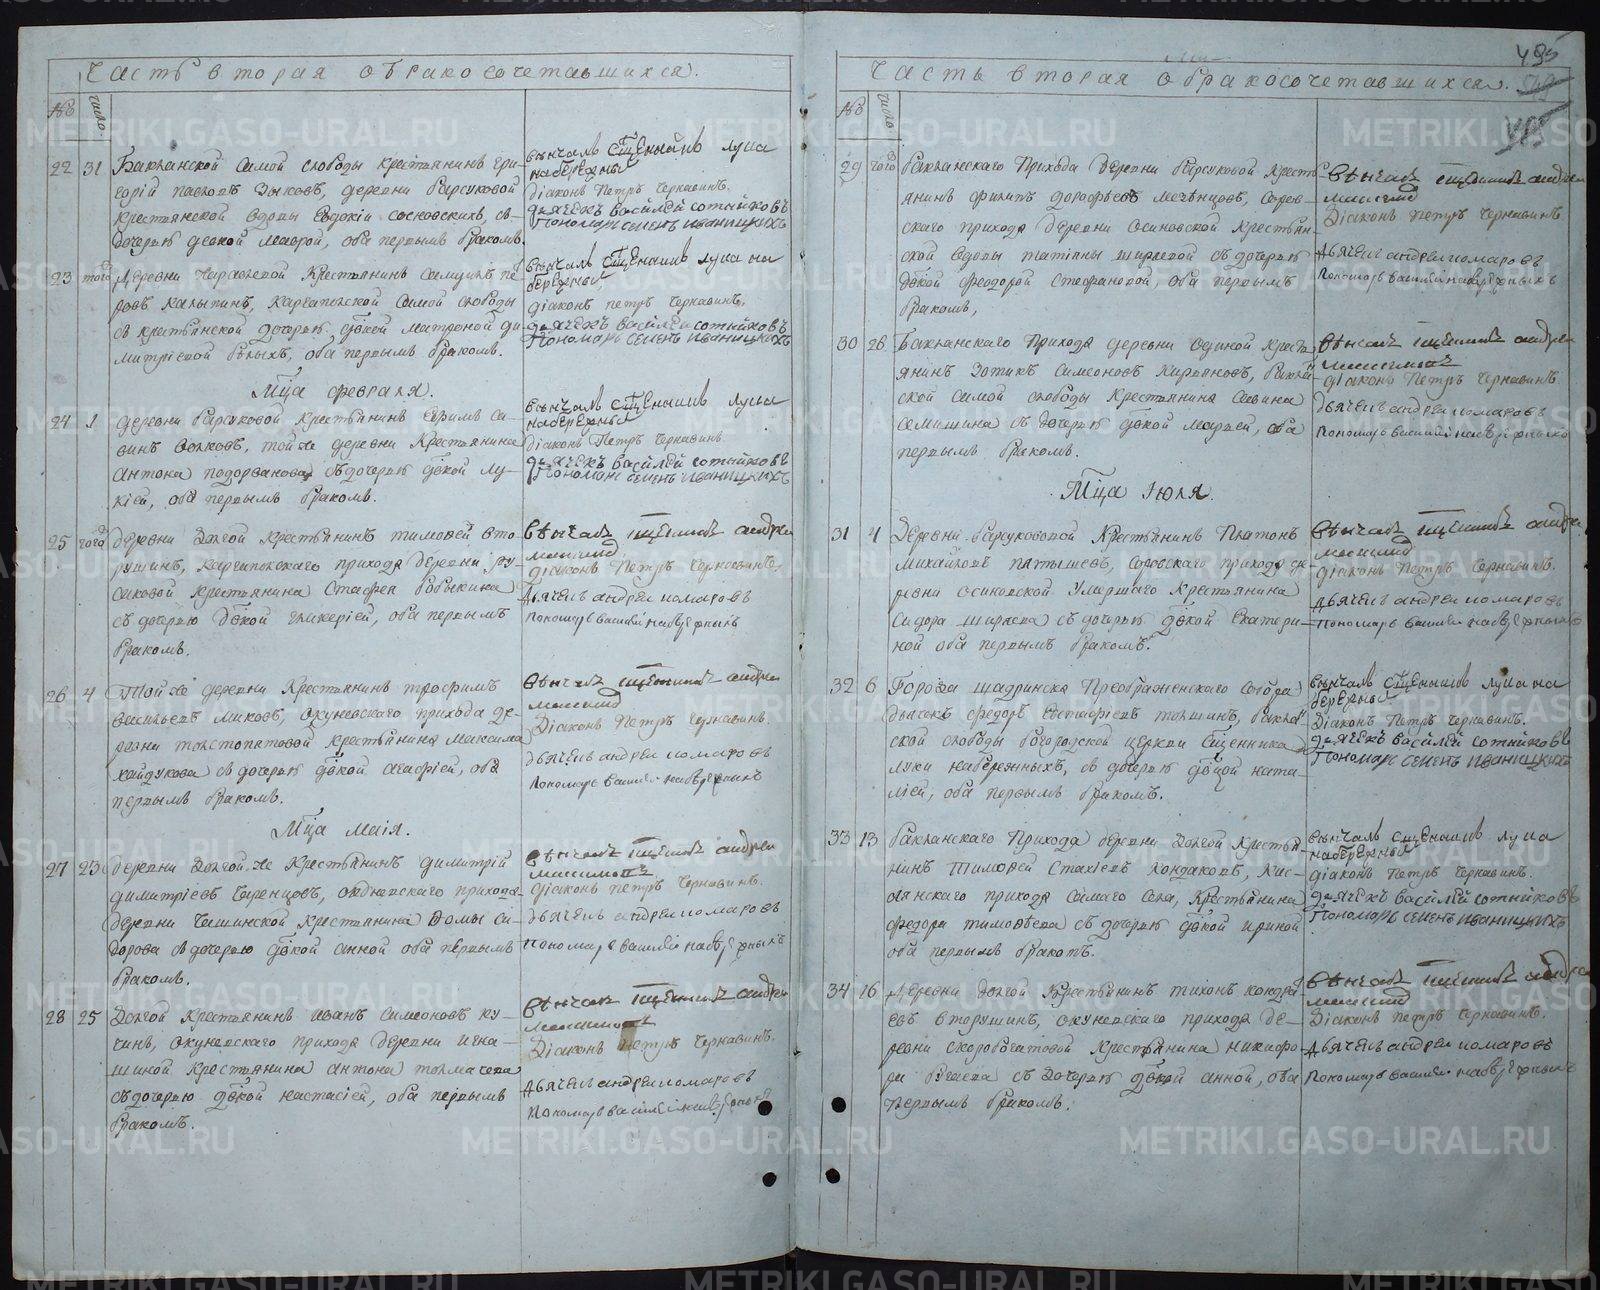 Часть вторая обракосочетавшихся.
№
число
22 31 Бакланской самой слободы крестьянинъ гри-
горій павловъ Зыковъ, деревни барсуковой
крестьянской вдовы Евдокіи сосновскихъ, съ
дочерью девкой маврой, оба первымъ бракомъ.
венчалъ священникъ лука
набережный
діаконъ Петръ Чернавинъ.
дьячекъ василей сотниковъ
Пономарь семенъ иваницкихъ
23 того Деревни Крестьянинъ
Каргапольской самой слободы
съ крестьянской дочерью девкой матроной ди-
митріевой белыхъ, оба первымъ бракомъ.
венчалъ священникъ лука на
бережный
діаконъ петръ Чернавинъ.
дьячекъ василей сотниковъ
Пономарь семенъ иваницкихъ
Мца февраля.
24 1 деревни барсуковой крестьянинъ Ефимъ са-
винъ волковъ, той же деревни крестьянина
Антона съ дочерью девкой лу-
кіей, оба первымъ бракомъ.
венчалъ священникъ лука
набережный
діаконъ Петръ Чернавинъ.
дьячекъ василей сотниковъ
Пономарь семенъ иваницкихъ
25 того деревни Долгой крестьянинъ тимофей вто-
рушинъ, каргапольскаго прихода деревни ру-
саковой крестьянина Стафея бабыкина
съ дочерью девкой гликеріей, оба первымъ
бракомъ.
венчалъ священникъ андрей
діаконъ Петръ Чернавинъ.
дьячекъ андрей комаровъ
пономарь василей набережныхъ
26 4 Той же деревни Крестьянинъ трофимъ
васильевъ окуневскаго прихода де-
ревни толстопятовой крестьянина максима
хайдукова съ дочерью девкой агафіей, оба
первымъ бракомъ.
венчалъ священникъ андрей
Діаконъ Петръ Чернавинъ.
дьячекъ андрей комаровъ
пономарь василей набережныхъ
Мца маія.
27 23 деревни долгой же крестьянинъ димитрій
димитріевъ прихода
деревни крестьянина Домы си-
дорова съ дочерью девкой анной оба первымъ
бракомъ.
венчалъ священникъ андрей
діаконъ петръ Чернавинъ.
дьячекъ андрей комаровъ
пономарь василей набережныхъ
28 25 Долгой крестьянинъ иванъ симеоновъ ку-
чинъ, окуневскаго прихода деревни игна-
шиной крестьянина антона толмачева
съ дочерью девкой настасіей, оба первымъ
бракомъ.
венчалъ священникъ андрей
Діаконъ петръ Чернавинъ.
дьячекъ андрей комаровъ
пономарь василей набережныхъ
495
Часть вторая обракосочетавшихся.
№
число
29 того бакланскаго Прихода деревни барсуковой крестъ
янинъ филипъ дорофеевъ
скаго прихода деревни осиновской крестьян-
ской вдовы татіяны ширяевой съ дочерью
девкой феодорой Стефановой, оба первымъ
бракомъ,
венчалъ священникъ андрей
Діаконъ петръ Чернавинъ
дьячекъ андрей комаровъ
пономарь василей набережныхъ
30 26 бакланскаго прихода деревни одиной кресть
янинъ Зотикъ симеоновъ
ской самой слободы крестьянина савина
съ дочерью девкой марьей, оба
первымъ бракомъ.
венчалъ священникъ андрей
діаконъ Петръ Чернавинъ
дьячекъ андрей комаровъ
пономарь василей набережныхъ
Мца Іюля.
31 4 Деревни барсуковой крестьянинъ Платонъ
михайловъ прихода де-
ревни осиновской умершаго крестьянина
Сидора ширяева съ дочерью девкой екатери-
ной оба первымъ бракомъ.
венчалъ священникъ андрей
діаконъ Петръ Чернавинъ.
дьячекъ андрей комаровъ
пономарь василей набережныхъ
32 6 Города шадринска Преображенскаго собора
дьячекъ федоръ Евстафіевъ бакла
ской слободы богородской церкви священника
луки набережныхъ, съ дочерью девкой ната-
ліей, оба первымъ бракомъ.
венчалъ священникъ лука на
бережный
Діаконъ петръ Чернавинъ.
дьячекъ василей сотниковъ
Пономарь семенъ иваницкихъ
33 13 бакланскаго Прихода деревни долгой крестья
нинъ Тимофей Стахіевъ Кондаковъ, кис-
лянскаго прихода самаго села, крестьянина
федора тимофеева съ дочерью девкой ириной
оба первымъ бракомъ.
венчалъ священникъ лука
набережный
діаконъ петръ Чернавинъ.
дьячекъ василей сотниковъ
Пономарь семенъ иваницкихъ
34 16 Деревни долгой крестьянинъ тихонъ кондра
евъ вторушинъ, окуневскаго прихода де-
ревни скоробогатовой крестьянина никифо-
ра съ дочерью девкой анной, оба
первымъ бракомъ.
венчалъ священникъ андрей
Діаконъ петръ Чернавинъ.
дьячекъ андрей комаровъ
пономарь василей набережныхъ
METRIKI.GASO-URAL.RU